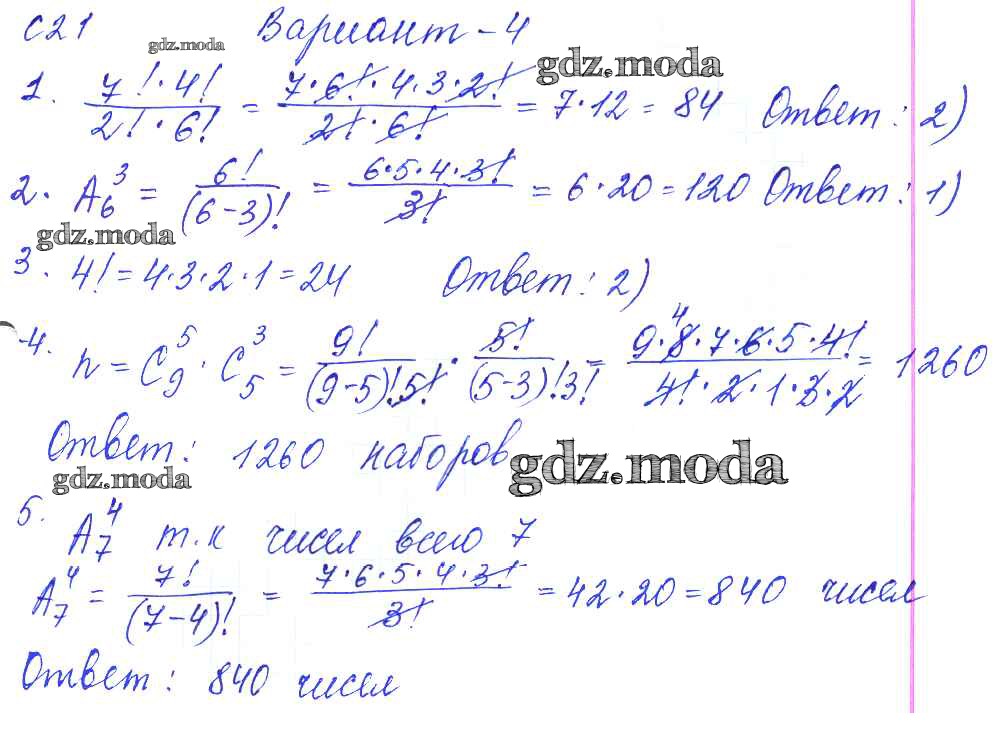 С21 Вариант-4
gdz.moda
gdz.moda
1. 7!·4! / 2!·6! = 7·6!·4·3·2! / 2!·6! = 7·12 = 84 Ответ: 2)
2. A₆³ = 6! / (6-3)! = 6·5·4·3! / 3! = 6·20 = 120 Ответ: 1)
gdz.moda
3. 4! = 4·3·2·1 = 24 Ответ: 2)
4. n = C₉⁵ · C₅³ = 9! / (9-5)!5! · 5! / (5-3)!3! = 9·8⁴·7·6·5·4! / 4!·2·1·3·2 = 1260
Ответ: 1260 наборов
gdz.moda
gdz.moda
5. A₇⁴ т.к чисел всего 7
A₇⁴ = 7! / (7-4)! = 7·6·5·4·3! / 3! = 42·20 = 840 чисел
Ответ: 840 чисел